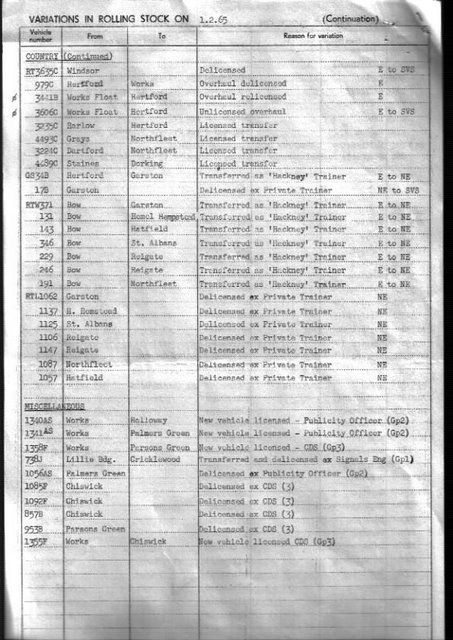 VARIATIONS IN ROLLING STOCK ON 1.2.65 (Continuation)
Vehicle number From To Reason for variation
COUNTRY (Continued)
RT3635C Windsor Delicensed E to SVS
979C Hertford Works Overhaul delicensed E
3441B Works Float Hertford Overhaul relicensed E
3606C Works Float Hertford Unlicensed overhaul E to SVS
3235C Harlow Hertford Licensed transfer
4493C Grays Northfleet Licensed transfer
3224C Dartford Northfleet Licensed transfer
4489C Staines Dorking Licensed transfer
GS34B Hertford Garston Transferred as 'Hackney' Trainer E to NE
17B Garston Delicensed ex Private Trainer NE to SVS
RTW371 Bow Garston Transferred as 'Hackney' Trainer E to NE
131 Bow Hemel Hempstead Transferred as 'Hackney' Trainer E to NE
143 Bow Hatfield Transferred as 'Hackney' Trainer E to NE
346 Bow St. Albans Transferred as 'Hackney' Trainer E to NE
229 Bow Reigate Transferred as 'Hackney' Trainer E to NE
246 Bow Reigate Transferred as 'Hackney' Trainer E to NE
191 Bow Northfleet Transferred as 'Hackney' Trainer E to NE
RTL1062 Garston Delicensed ex Private Trainer NE
1137 H. Hemstead Delicensed ex Private Trainer NE
1125 St. Albans Delicensed ex Private Trainer NE
1106 Reigate Delicensed ex Private Trainer NE
1147 Reigate Delicensed ex Private Trainer NE
1087 Northfleet Delicensed ex Private Trainer NE
1057 Hatfield Delicensed ex Private Trainer NE
MISCELLANEOUS
1340AS Works Holloway New vehicle licensed - Publicity Officer (Gp2)
1341AS Works Palmers Green New vehicle licensed - Publicity Officer (Gp2)
1358F Works Parsons Green New vehicle licensed - CDS (Gp3)
738J Lillie Bdg. Cricklewood Transferred and delicensed ex Signals Eng (Gp1)
1056AS Palmers Green Delicensed ex Publicity Officer (Gp2)
1085F Chiswick Delicensed ex CDS (3)
1092F Chiswick Delicensed ex CDS (3)
857B Chiswick Delicensed ex CDS (3)
953B Parsons Green Delicensed ex CDS (3)
1355F Works Chiswick New vehicle licensed CDS (Gp3)